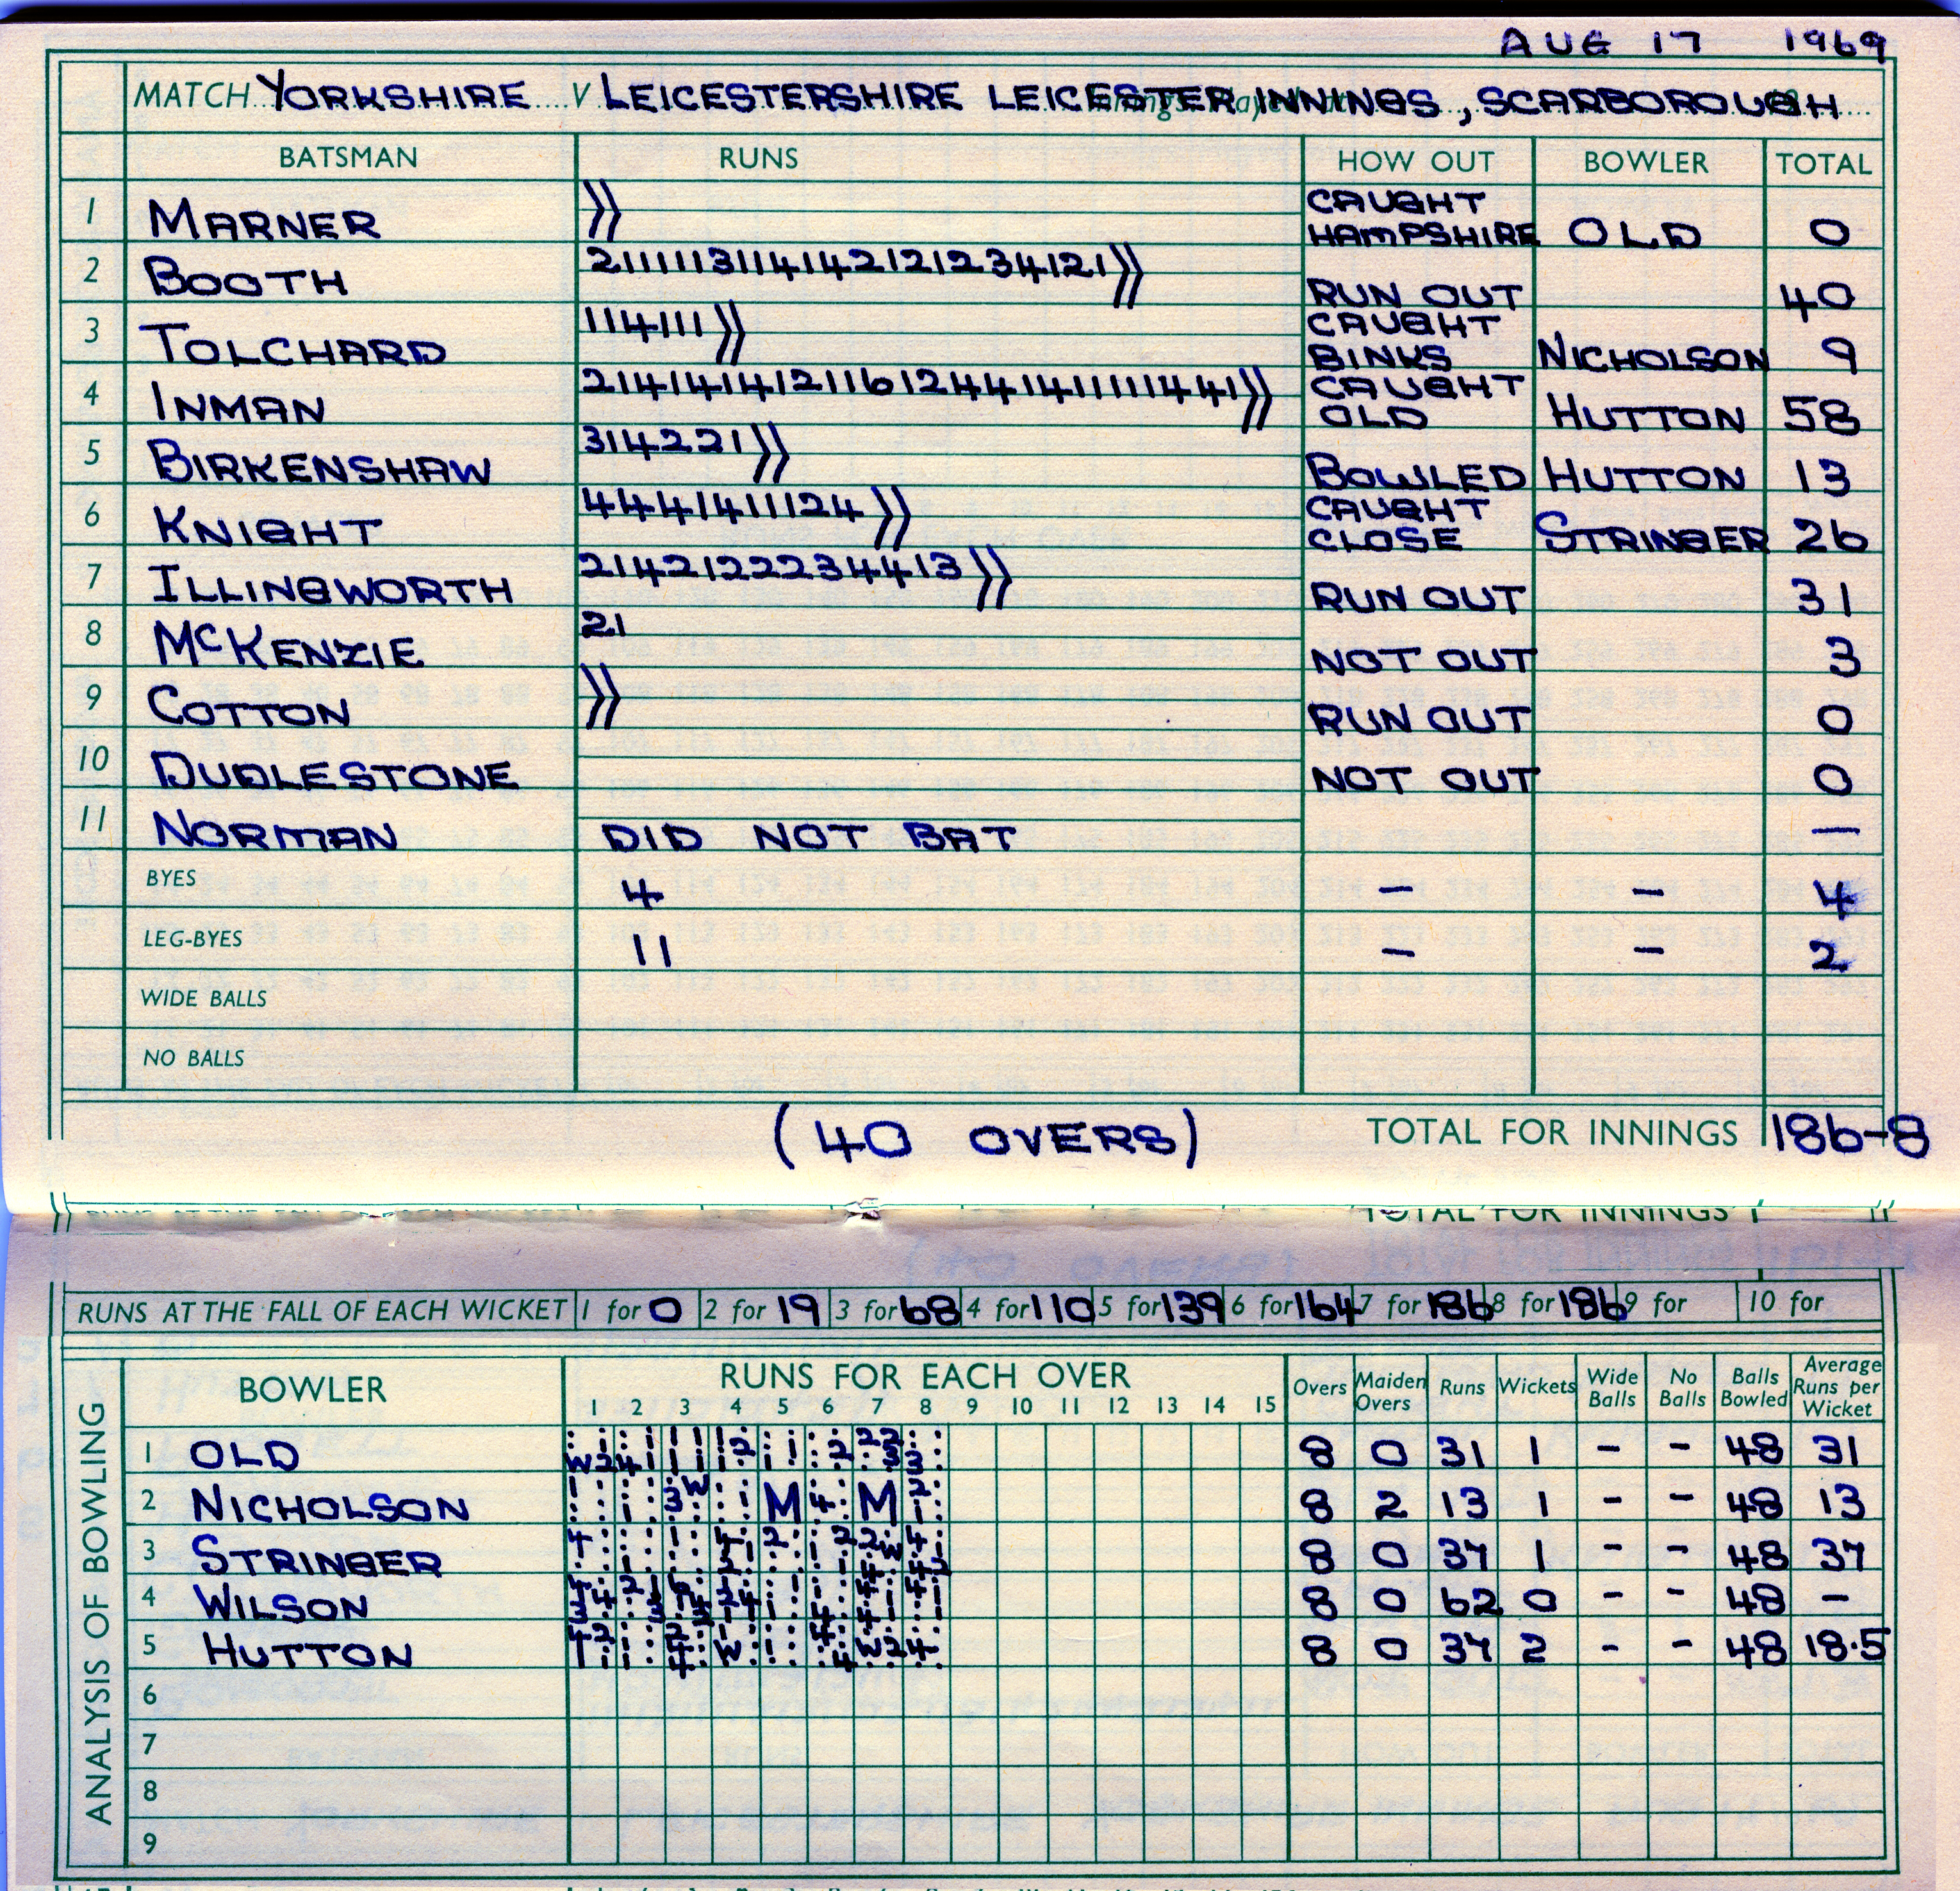 AUG 17 1969
MATCH YORKSHIRE V LEICESTERSHIRE LEICESTER INNINGS, SCARBOROUGH
BATSMAN RUNS HOW OUT BOWLER TOTAL
1 MARNER CAUGHT HAMPSHIRE OLD 0
2 BOOTH 2111113114142121234121 RUN OUT 40
3 TOLCHARD 114111 CAUGHT BINKS NICHOLSON 9
4 INMAN 21414141211612441411111441 CAUGHT OLD HUTTON 58
5 BIRKENSHAW 314221 BOWLED HUTTON 13
6 KNIGHT 4441411124 CAUGHT CLOSE STRINGER 26
7 ILLINGWORTH 2142122234413 RUN OUT 31
8 McKENZIE 21 NOT OUT 3
9 COTTON RUN OUT 0
10 DUDLESTONE NOT OUT 0
11 NORMAN DID NOT BAT —
BYES 4 – – 4
LEG-BYES 11 – – 2
WIDE BALLS
NO BALLS
(40 OVERS) TOTAL FOR INNINGS 186-8
TOTAL FOR INNINGS
RUNS AT THE FALL OF EACH WICKET 1 for 0 2 for 19 3 for 68 4 for 110 5 for 139 6 for 164 7 for 186 8 for 186 9 for 10 for
ANALYSIS OF BOWLING
BOWLER RUNS FOR EACH OVER Overs Maiden Overs Runs Wickets Wide Balls No Balls Balls Bowled Average Runs per Wicket
1 2 3 4 5 6 7 8 9 10 11 12 13 14 15
1 OLD 8 0 31 1 – – 48 31
2 NICHOLSON M M 8 2 13 1 – – 48 13
3 STRINGER 8 0 37 1 – – 48 37
4 WILSON 8 0 62 0 – – 48 –
5 HUTTON 8 0 37 2 – – 48 18·5
6
7
8
9